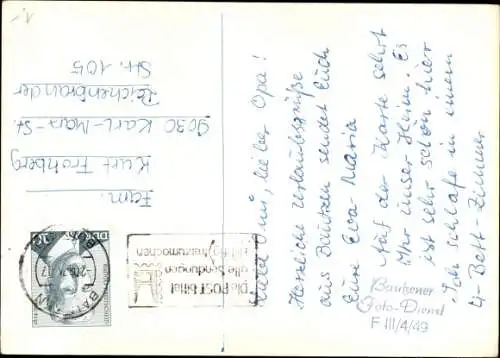 1.-
Liebe Omi, lieber Opa!
Herzliche Urlaubsgrüße
aus Bautzen sendet Euch
Eure Eva-Maria
Auf der Karte seht
Ihr unser Heim. Es
ist sehr schön hier
Ich schlafe in einem
4-Bett-Zimmer
Fam.
Kurt Frohberg
9030 Karl-Marx-St.
Reichenbrander
Str. 105
DDR
BAUTZEN
Die POST bittet
alle Sendungen
freizumachen
Bautzener
Foto-Dienst
F III/4/49